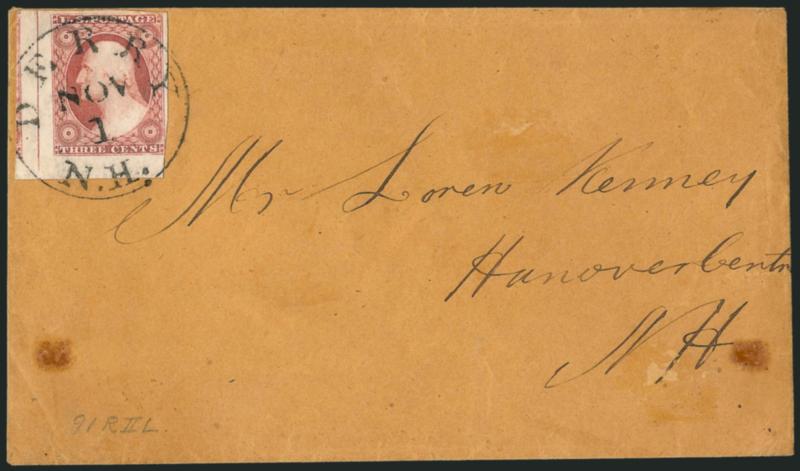 U.S. POSTAGE
DERRY
NOV
1
N.H.
THREE CENTS
Mr Loren Kenney
Hanover Centre
N H
91 R II L.